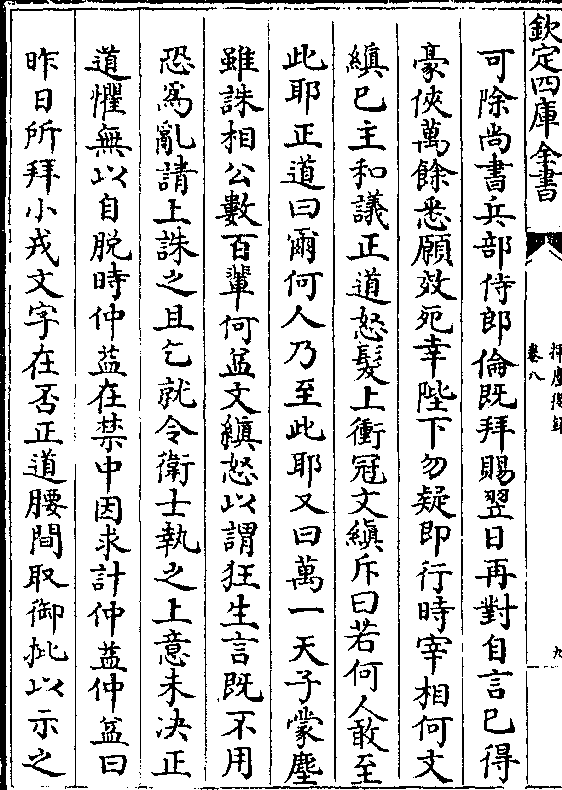 欽定四庫全書
揮麈後録
卷八
九
可除尚書兵部侍郎倫既拜賜翌日再對自言已得
豪俠萬餘悉願效死幸陛下勿疑即行時宰相何文
縝已主和議正道怒髮上衝冠文縝斥曰若何人敢至
此耶正道曰爾何人乃至此耶又曰萬一天子蒙塵
雖誅相公數百輩何益文縝怒以謂狂生言既不用
恐為亂請上誅之且乞就令衛士執之上意未決正
道懼無以自脱時仲葢在禁中因求計仲葢仲葢曰
昨日所拜小戎文字在否正道腰間取御批以示之